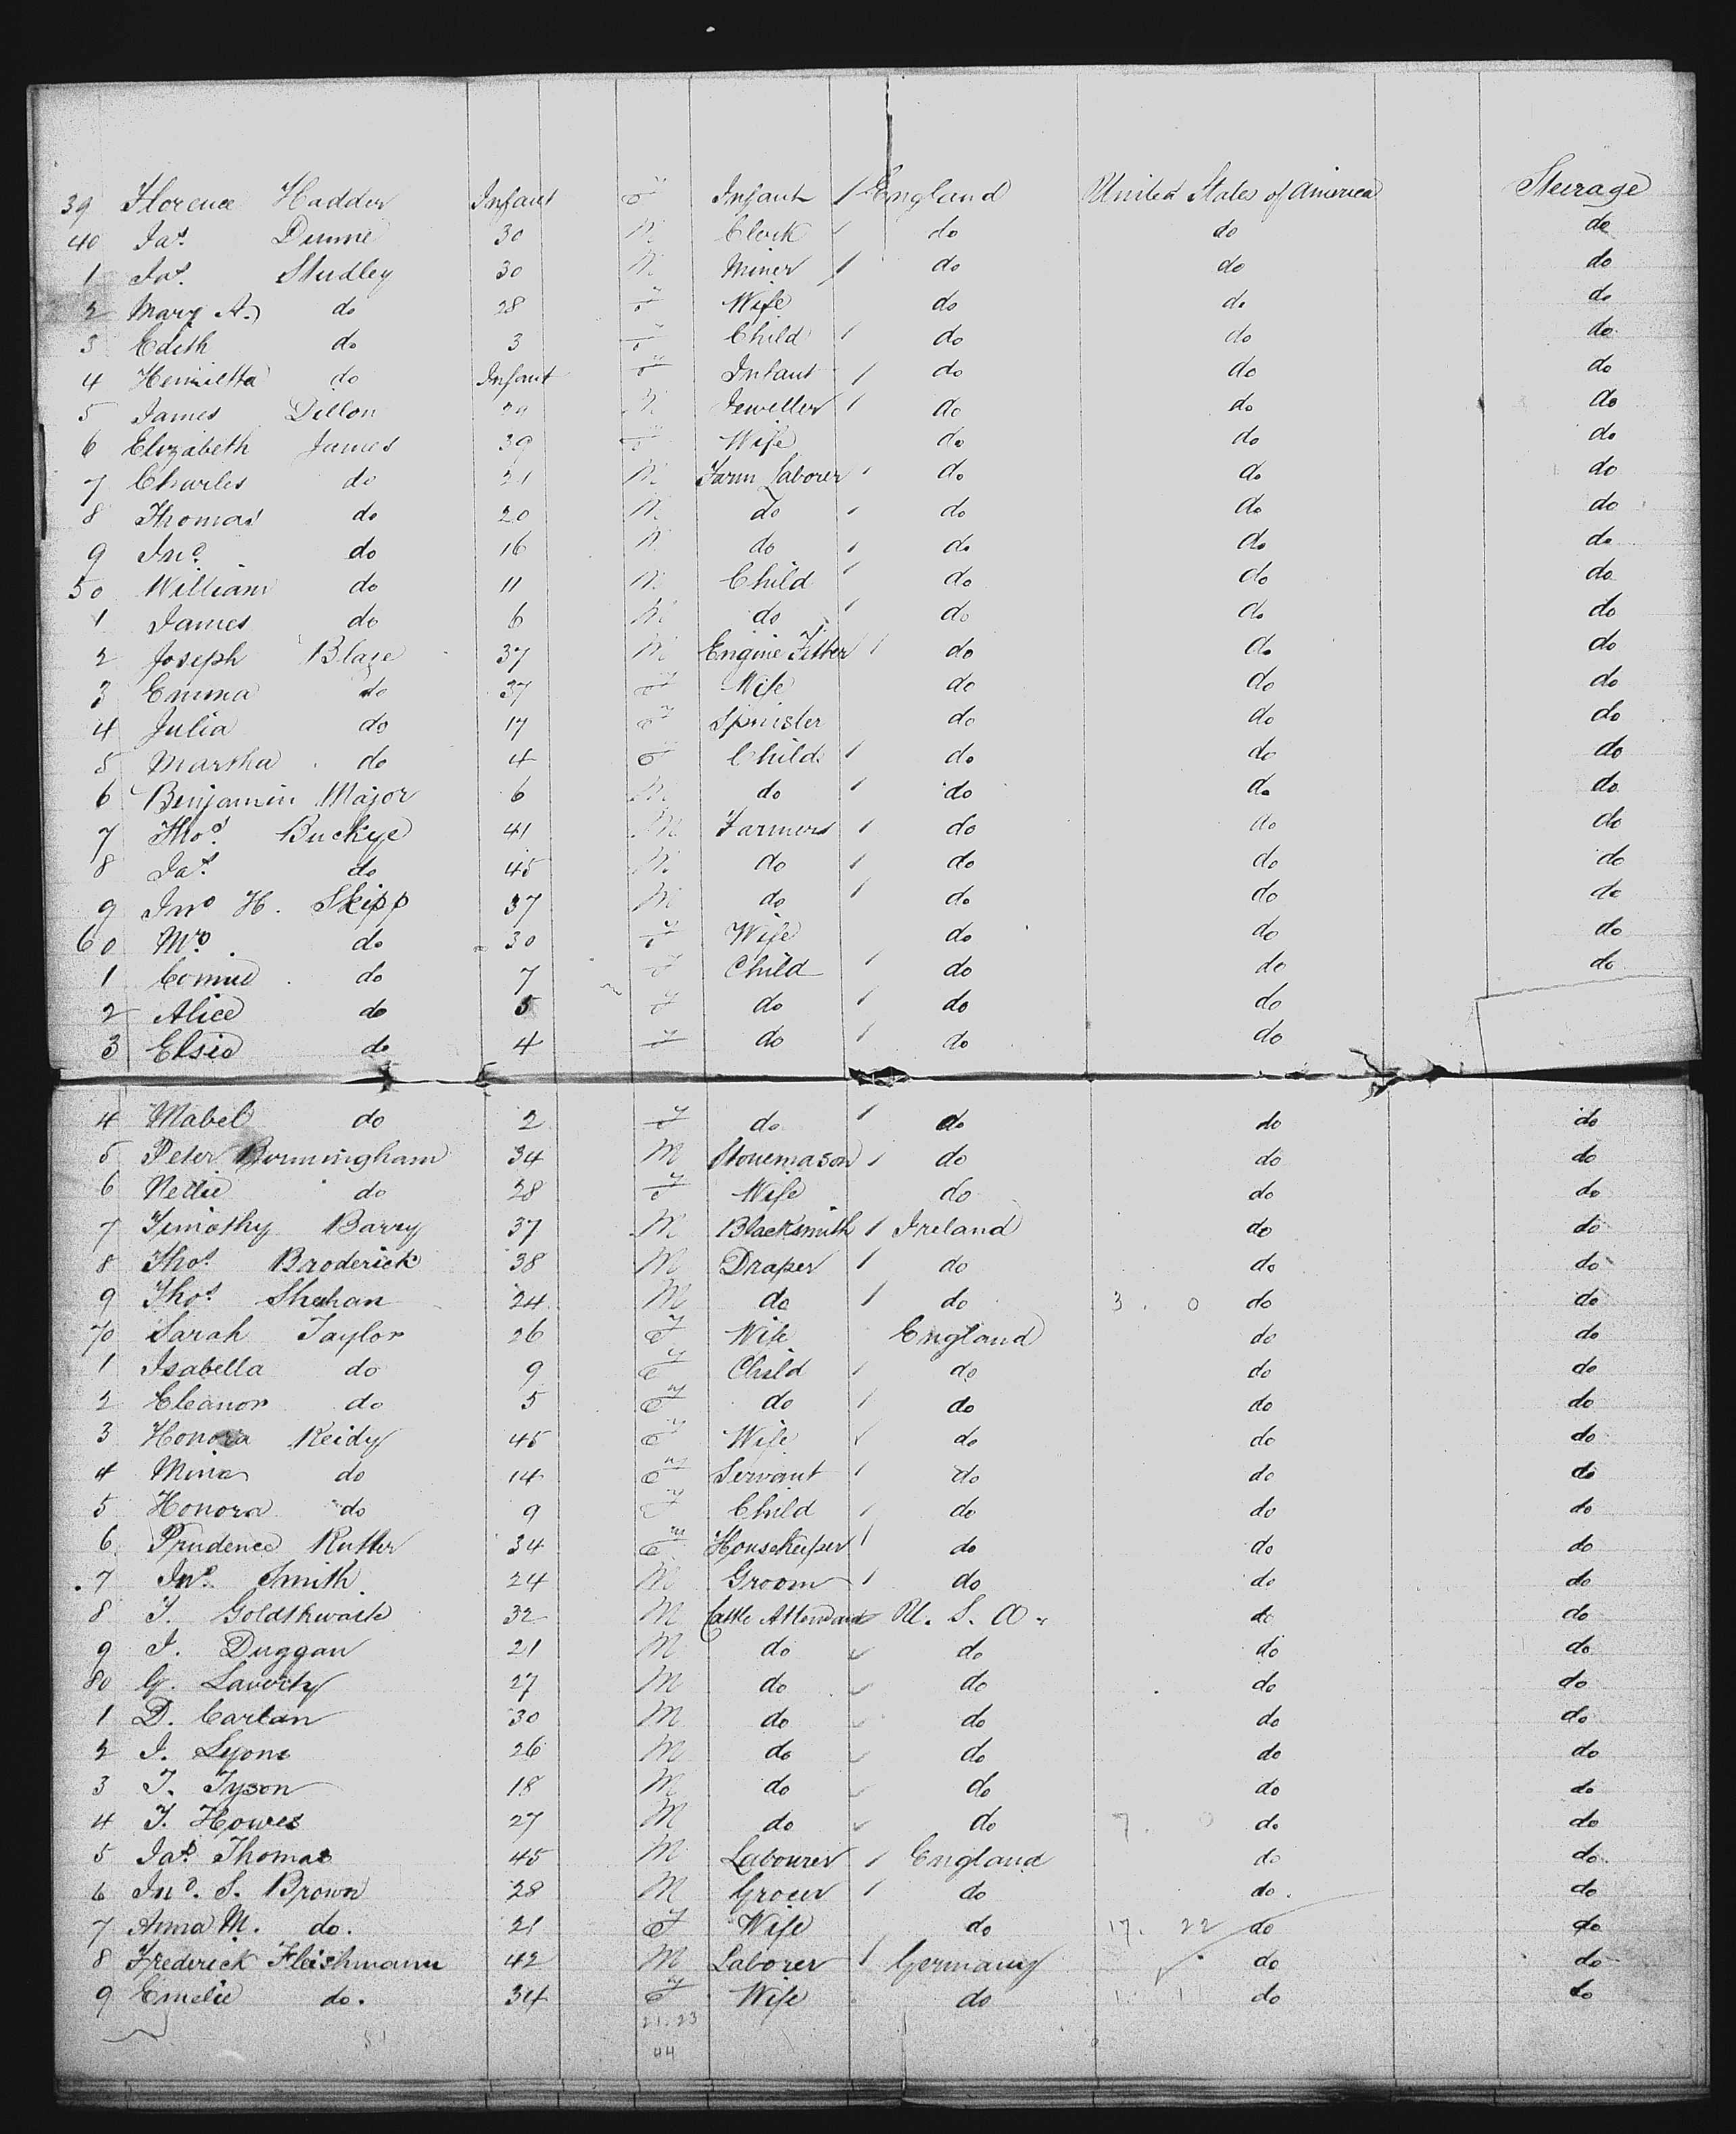 39 Florence Hadder Infant F Infant / England United States of America Steerage
40 Jas. Dunne 30 M Clerk / do do do
1 Jas. Studley 30 M Miner / do do do
2 Mary A. do 28 F Wife do do do
3 Edith do 3 F Child / do do do
4 Henrietta do Infant F Infant / do do do
5 James Dillon M Jeweller / do do do
6 Elizabeth James 39 F Wife do do do
7 Charles do 21 M Farm Laborer / do do do
8 Thomas do 20 M do / do do do
9 Jno. do 16 M do / do do do
50 William do 11 M Child / do do do
1 James do 6 M do / do do do
2 Joseph Blaze 37 M Engine Fitter / do do do
3 Emma do 37 F Wife do do do
4 Julia do 17 F Spinister do do do
5 Martha do 4 F Child / do do do
6 Benjamin Major 6 M do / do do do
7 Thos. Buckye 41 M Farmers / do do do
8 Jas. do 45 M do / do do do
9 Jno H. Skipp 37 M do / do do do
60 Mrs. do 30 F Wife do do do
1 Connie do 7 F Child / do do do
2 Alice do 5 F do / do do
3 Elsie do 4 F do / do do
4 Mabel do 2 F do / do do do
5 Peter Birmingham 34 M Stonemason / do do do
6 Nettie do 28 F Wife do do do
7 Timothy Barry 37 M Blacksmith / Ireland do do
8 Thos. Broderick 38 M Draper / do do do
9 Thos. Shehan 24 M do / do 3. 0 do do
70 Sarah Taylor 26 F Wife England do do
1 Isabella do 9 F Child / do do do
2 Eleanor do 5 F do / do do do
3 Honora Reidy 45 F Wife ✓ do do do
4 Mina do 14 F Servant / do do do
5 Honora do 9 F Child / do do do
6 Prudence Rutter 34 F Housekeeper / do do do
7 Jno. Smith 24 M Groom / do do do
8 T. Goldthwaite 32 M Cattle Attendant U. S. A. do do
9 J. Duggan 21 M do ✓ do do do
80 G. Laverty 27 M do ✓ do do do
1 D. Carlan 30 M do ✓ do do do
2 J. Lyons 26 M do ✓ do do do
3 T. Tyson 18 M do ✓ do do do
4 T. Howes 27 M do ✓ do 7. 0 do do
5 Jas. Thomas 45 M Labourer / England do do
6 Jno. S. Brown 28 M Grocer / do do. do
7 Anna M. do. 21 F Wife do 17. 22 do do
8 Frederick Fleishmann 42 M Laborer / Germany ✓ do do
9 Emelie do. 34 F Wife do 1. 1 do do
21.23
44